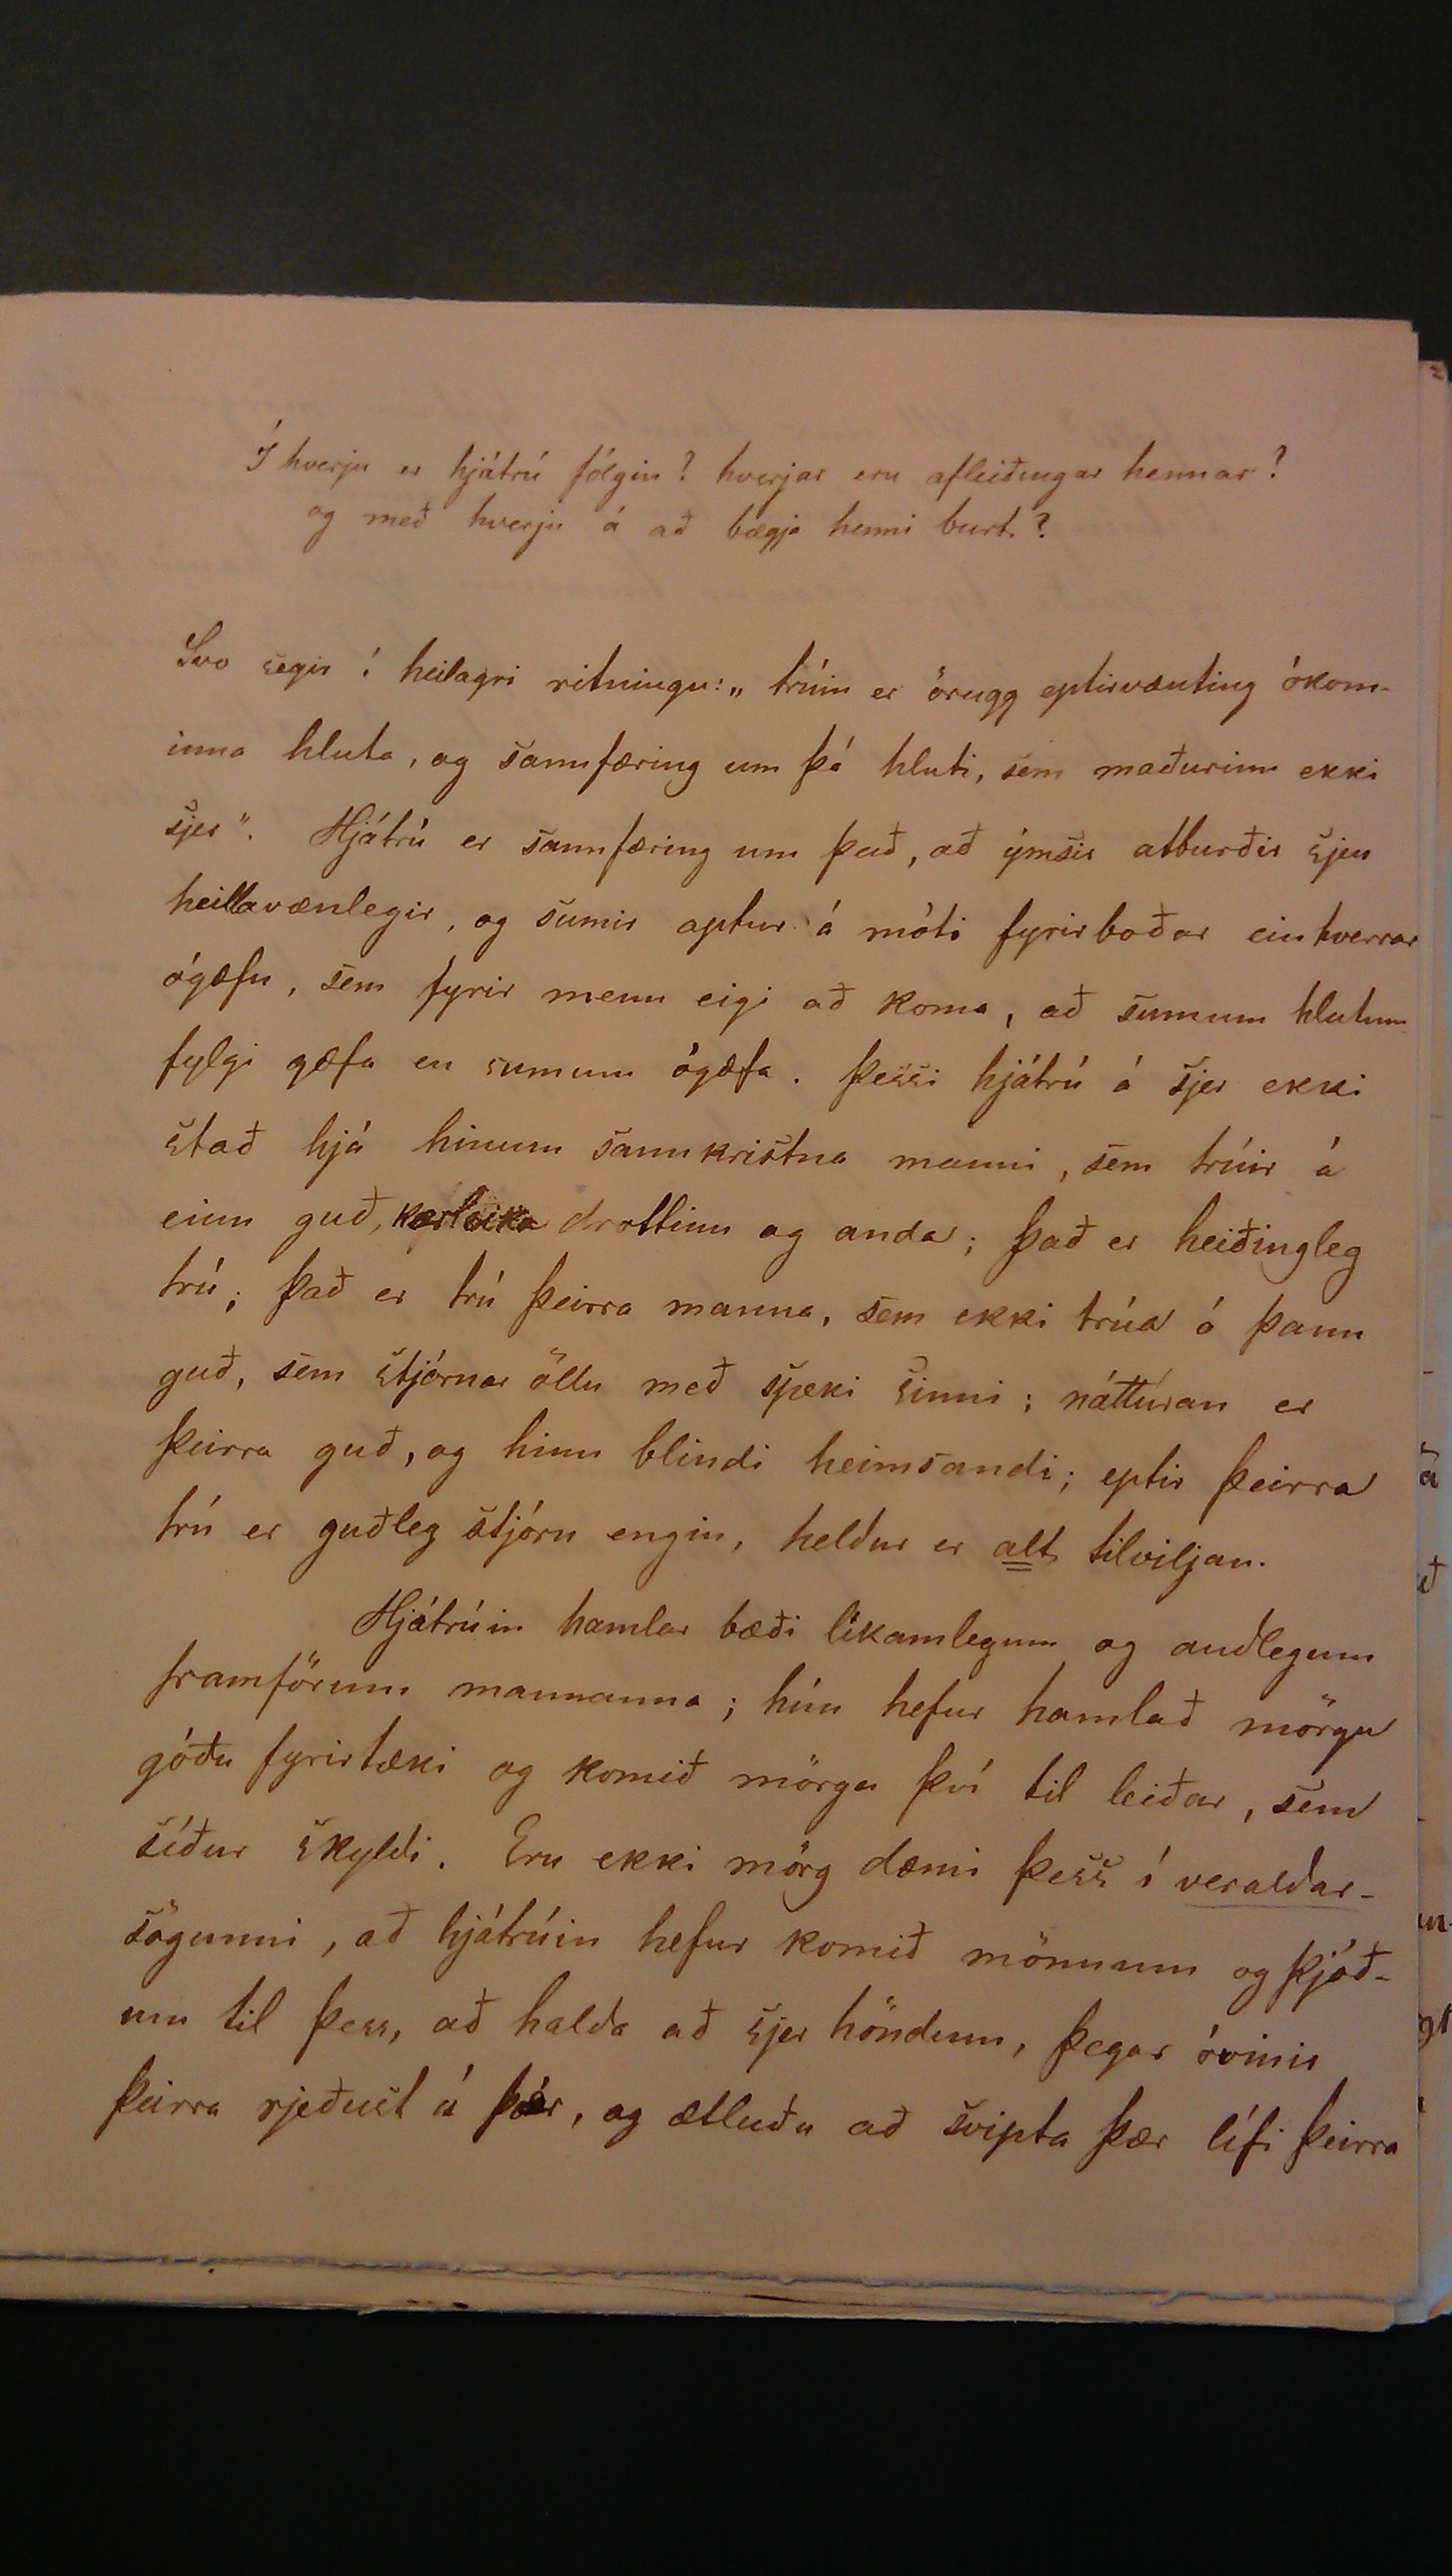 Í hverju er hjátrú fólgin? hverjar eru afleiðingar hennar?
og með hverju á að bægja henni burt?
Svo segir í heilagri ritningu: „trúin er örugg eptirvænting ókom-
inna hluta, og sannfæring um þá hluti, sem maðurinn ekki
sjer“. Hjátrú er sannfæring um það, að ýmsir atburðir sjeu
heillavænlegir, og sumir aptur á móti fyrirboðar einhverrar
ógæfu, sem fyrir menn eigi að koma, að sumum hlutum
fylgi gæfa en sumum ógæfa. Þessi hjátrú á sjer ekki
stað hjá hinum sannkristna manni, sem trúir á
einn guð, kærleika drottinn og anda; það er heiðingleg
trú; það er trú þeirra manna, sem ekki trúa á þann
guð, sem stjórnar öllu með speki sinni; náttúran er
þeirra guð, og hinn blindi heimsandi; eptir þeirra
trú er guðleg stjórn engin, heldur er alt tilviljan.
Hjátrúin hamlar bæði líkamlegum og andlegum
framförum mannanna; hún hefur hamlað mörgu
góðu fyrirtæki og komið mörgu því til leiðar, sem
síður skyldi. Eru ekki mörg dæmi þess í veraldar-
sögunni, að hjátrúin hefur komið mönnum og þjóð-
um til þess, að halda að sjer höndum, þegar óvinir
þeirra rjeðust á þær, og ætluðu að svipta þær lífi þeirra